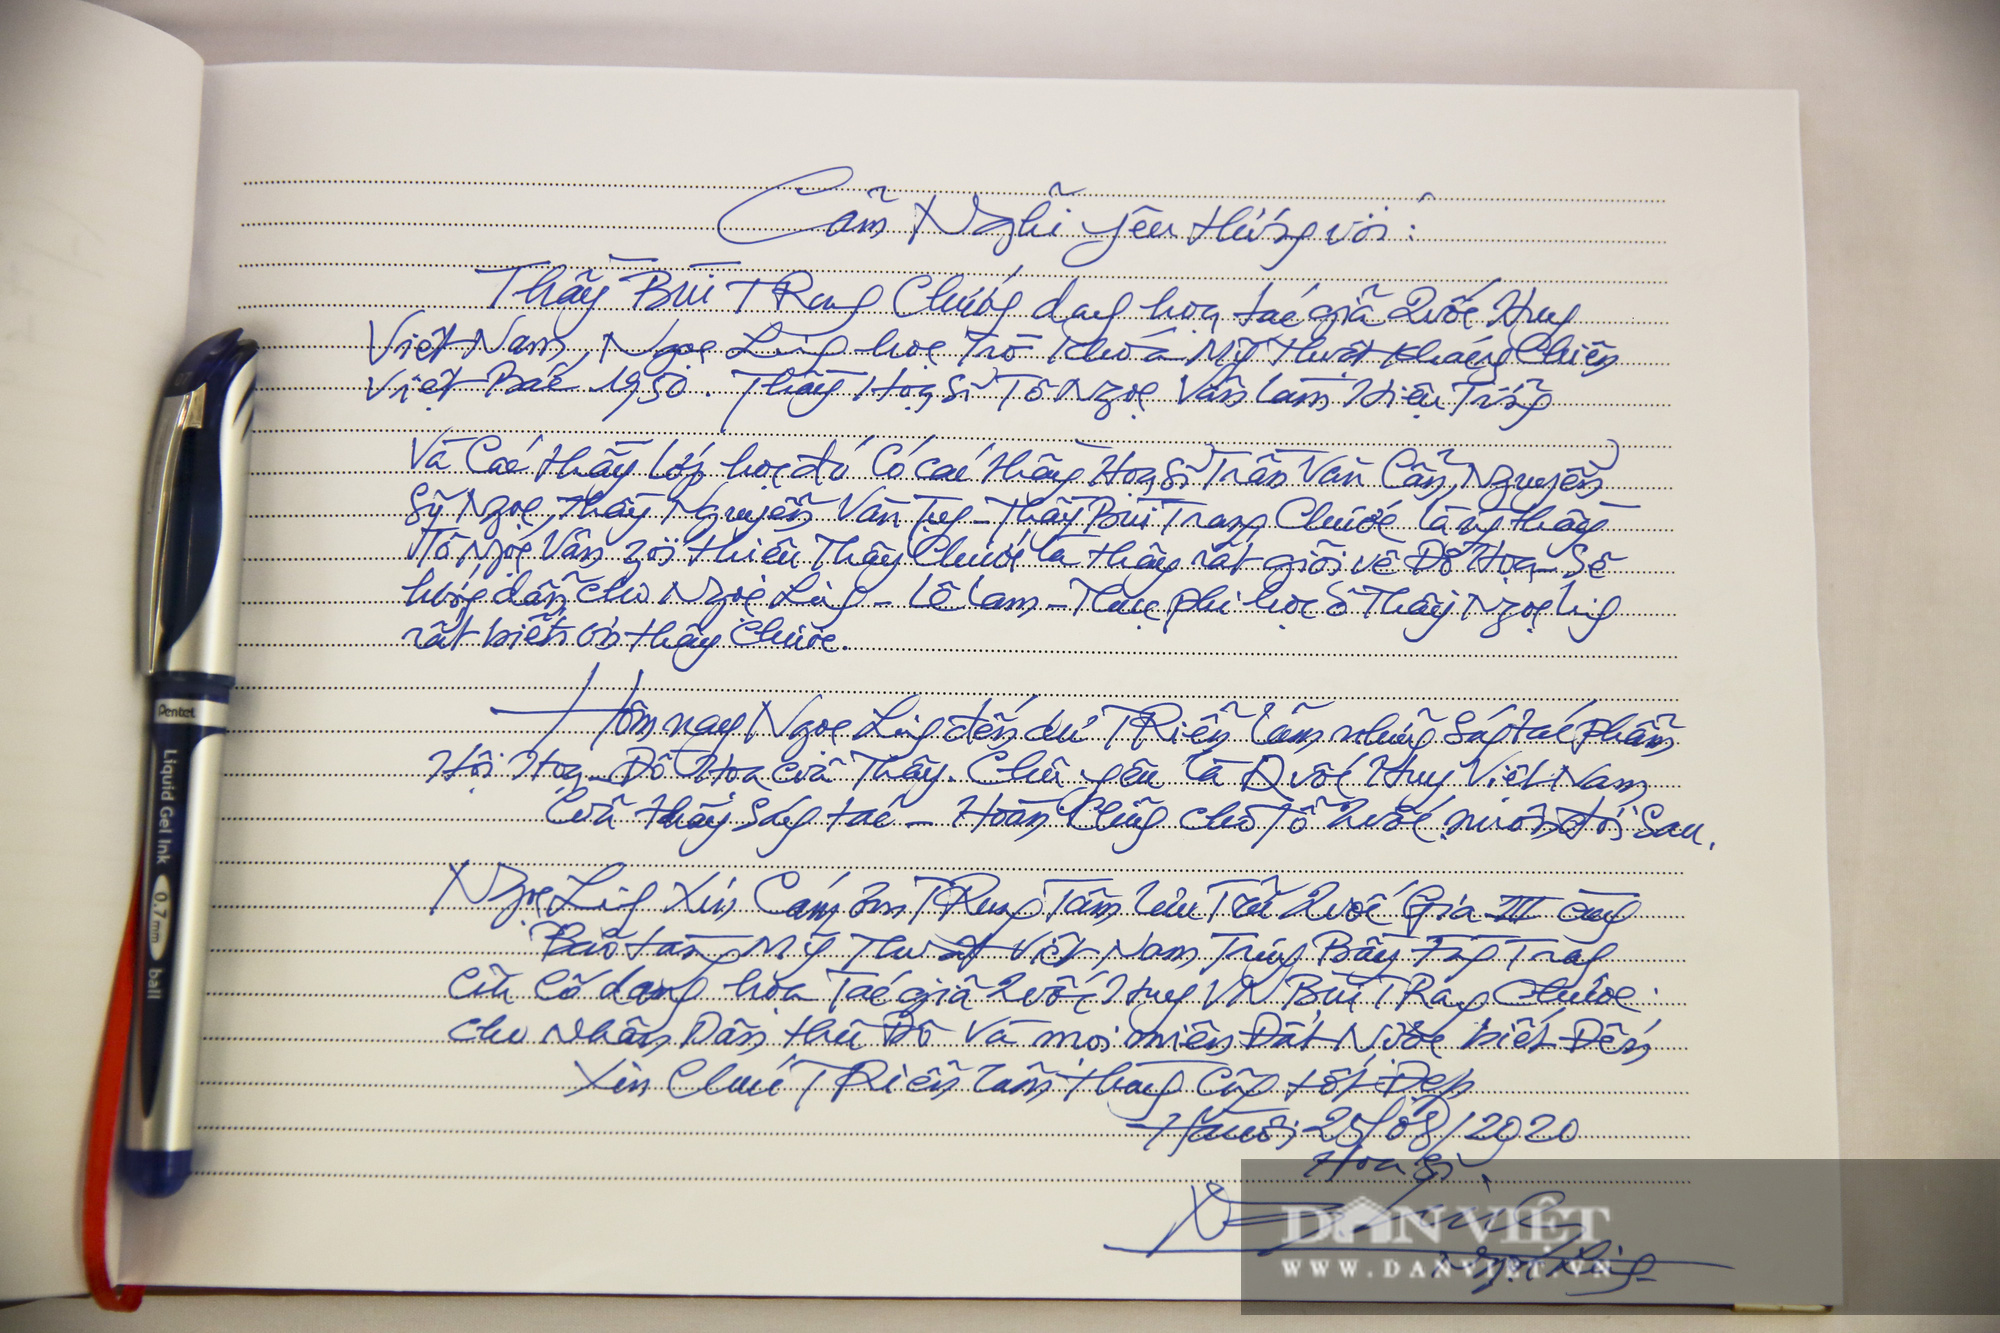 Cảm Nghĩ yêu thương với:
Thầy Bùi Trang Chước danh họa tác giả Quốc Huy
Việt Nam, Ngọc Linh học trò khoá Mỹ Thuật Kháng Chiến
Việt Bắc 1950. Thầy Họa sĩ Tô Ngọc Vân làm Hiệu Trưởng
Và Các thầy lớp học đó Có các thầy Họa Sĩ Trần Văn Cẩn, Nguyễn
Sỹ Ngọc, thầy Nguyễn Văn Tỵ - Thầy Bùi Trang Chước là thầy
Tô Ngọc Vân giới thiệu Thầy Chước là thầy rất giỏi về Đồ Họa Sẽ
hướng dẫn cho Ngọc Linh - Lê Lam - Thục Phi học ở Thầy Ngọc Linh
rất biết ơn thầy Chước.
Hôm nay Ngọc Linh đến dự Triển lãm những Sáng tác phẩm
Hội Họa - Đồ Họa của Thầy. Chủ yếu là Quốc Huy Việt Nam
Của thầy Sáng tác - Hoàn Chỉnh cho Tổ Quốc muôn đời Sau.
Ngọc Linh Xin Cám ơn Trung Tâm Lưu Trữ Quốc Gia III cùng
Bảo tàng Mỹ Thuật Việt Nam Trưng Bầy Trang
Cố danh họa Tác giả Quốc Huy VN Bùi Trang Chước.
cho Nhân Dân thủ Đô Và mọi miền Đất Nước biết Đến
Xin Chúc Triển Lãm thành Công tốt Đẹp
Hà nội 25/08/2020
Họa sĩ
Ngọc Linh
DÂN VIỆT
WWW.DANVIET.VN
Pentel
Liquid Gel Ink 0.7mm ball